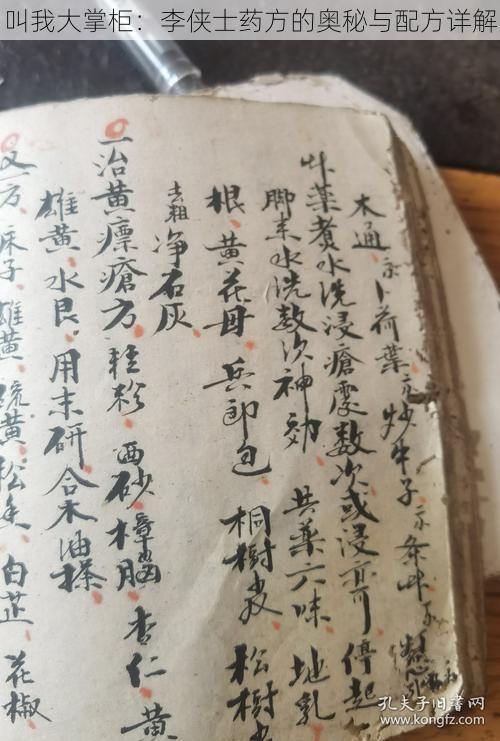 叫我大掌柜：李侠士药方的奥秘与配方详解
木通 卜荷葉 炒牛子 条
草藥煮水洗浸瘡處数次或浸亦可停起
脚 水洗数次神効 共藥六味 地乳
根 黄花母 兵郎包 桐樹皮 松樹
去粗净石灰
一治黄瘭瘡方 轻粉 西砂 樟脑 杏仁 黄
雄黄 水艮 用末研合木油搽
又一方 麻子 雄黄 硫黄 松 白芷 花椒
孔夫子旧书网
www.kongfz.com